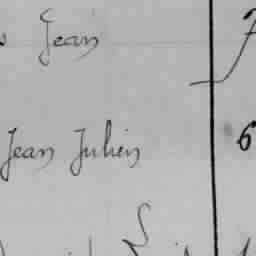 s Jean 7
Jean Julien 6